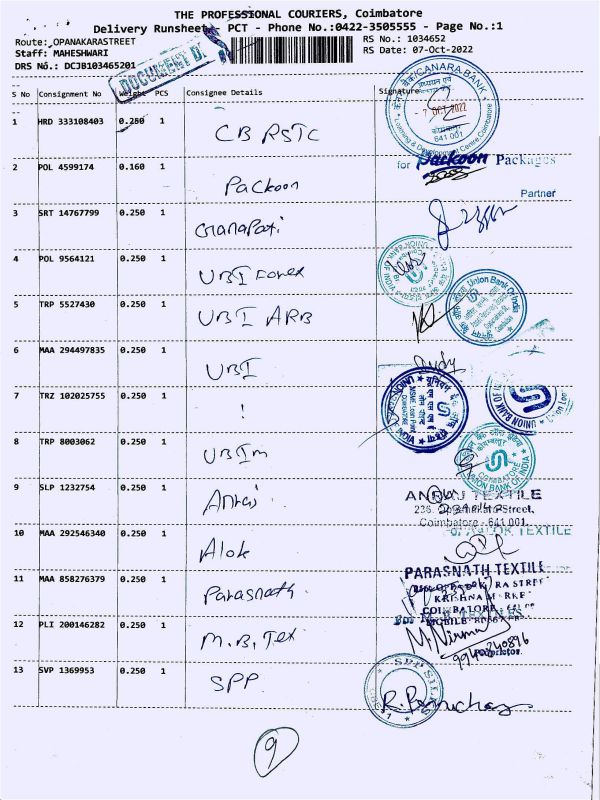 THE PROFESSIONAL COURIERS, Coimbatore
Delivery Runsheet - PCT - Phone No.:0422-3505555 - Page No.:1
Route: OPANAKARASTREET RS No.: 1034652
Staff: MAHESHWARI RS Date: 07-Oct-2022
DRS No.: DCJB103465201
DOCUMENT
S No Consignment No Weight PCS Consignee Details Signature
CANARA BANK
- 7 OCT 2022
Learning & Development Centre, Coimbatore
641 001
1 HRD 333108403 0.250 1 CB RSTC
for Packoon Packages
2 POL 4599174 0.160 1 Packoon
Partner
3 SRT 14767799 0.250 1 Ganapati
4 POL 9564121 0.250 1 UBI Forex
Union Bank Of India
5 TRP 5527430 0.250 1 UBI ARB
6 MAA 294497835 0.250 1 UBI
UNION BANK OF
7 TRZ 102025755 0.250 1 !
MSME Loan Point
8 TRP 8003062 0.250 1 UBIm
COIMBATORE
UNION BANK OF INDIA
9 SLP 1232754 0.250 1
TEXTILE
Street,
Coimbatore - 641 001.
10 MAA 292546340 0.250 1 Alok
ALOK TEXTILE
11 MAA 858276379 0.250 1 Parasnath
PARASNATH TEXTILE
KRISHNA
COIMBATORE
12 PLI 200146282 0.250 1 M.B. Tex
M. Nirma
9940240896
Proprietor
13 SVP 1369953 0.250 1 SPP
SPP SILKS
9